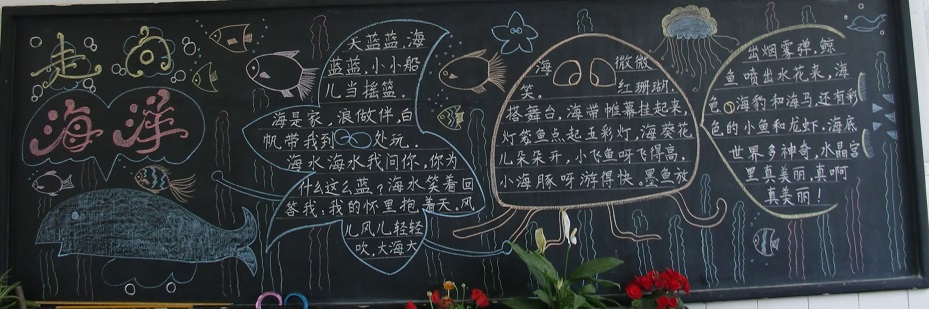 走向
海洋
天蓝蓝,海
蓝蓝,小小船
儿当摇篮。
海是家,浪做伴,白
帆带我到处玩。
海水海水我问你,你为
什么这么蓝?海水笑着回
答我:我的怀里抱着天。风
儿风儿轻轻
吹,大海大
海微微
笑。红珊瑚,
搭舞台,海带帷幕挂起来,
灯袋鱼点起五彩灯,海葵花
儿朵朵开,小飞鱼呀飞得高,
小海豚呀游得快。墨鱼放
出烟雾弹,鲸
鱼喷出水花来,海
色海豹和海马,还有彩
色的小鱼和龙虾。海底
世界多神奇,水晶宫
里真美丽,真啊
真美丽!